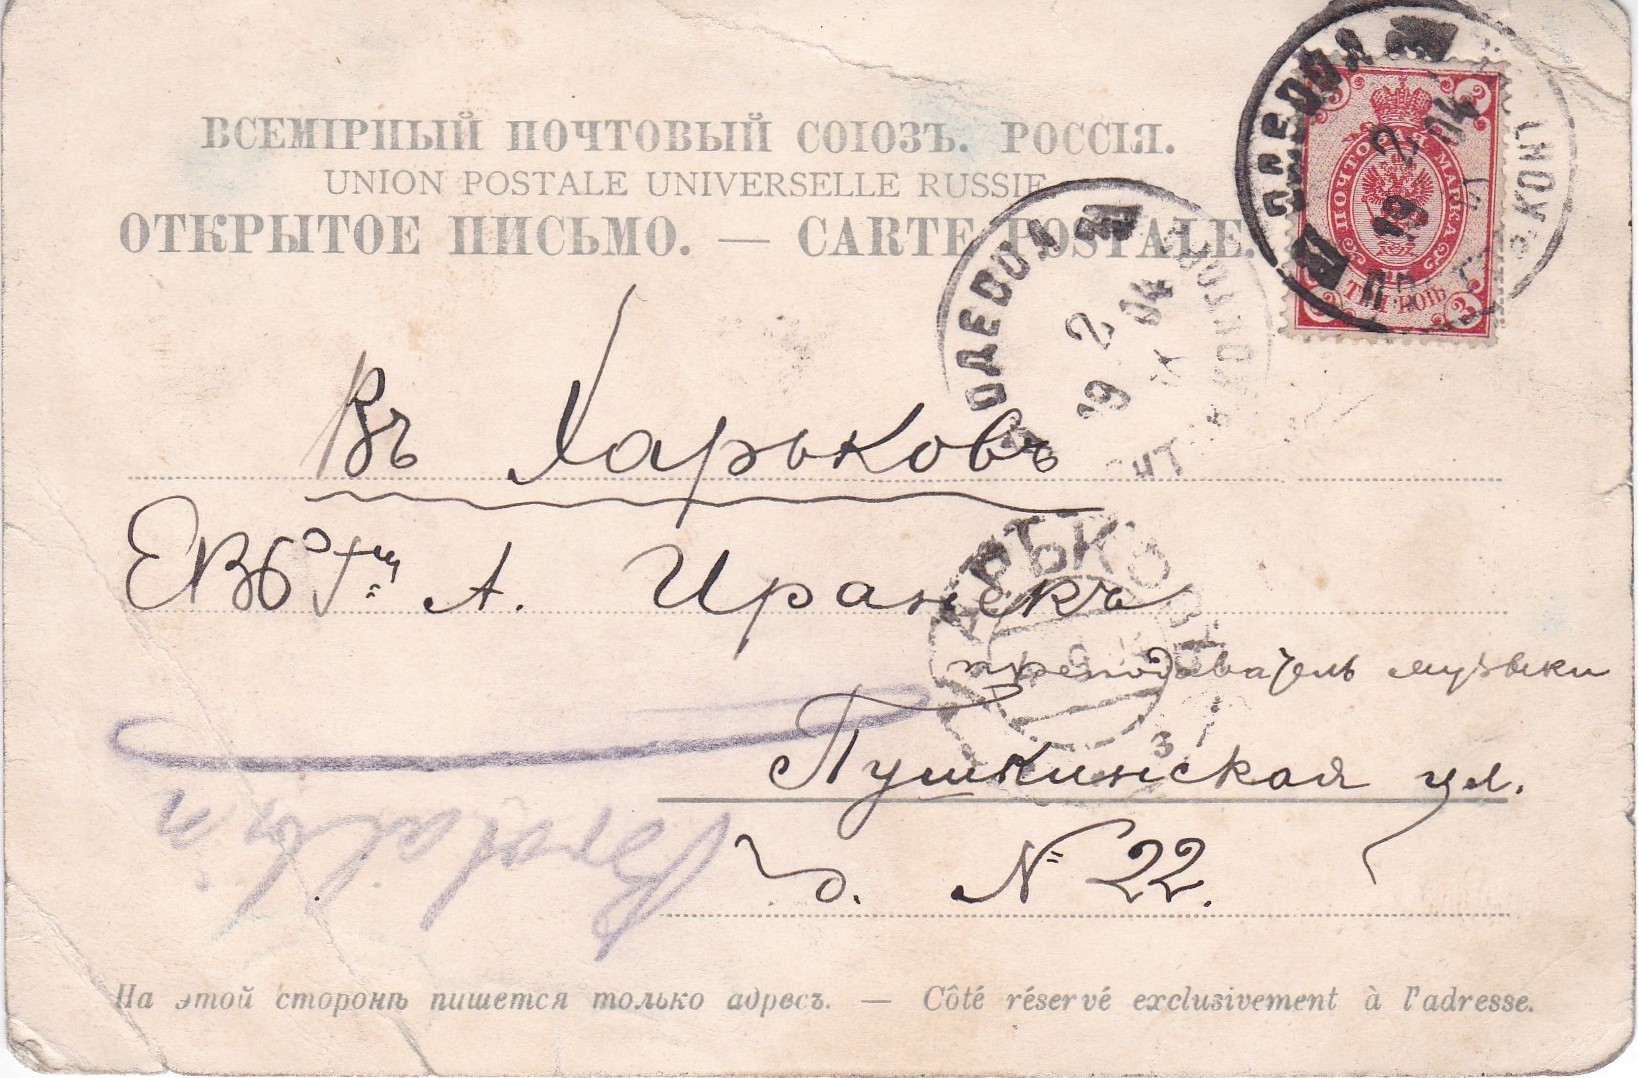 ВСЕМІРНЫЙ ПОЧТОВЫЙ СОЮЗЪ. РОССІЯ.
UNION POSTALE UNIVERSELLE RUSSIE
ОТКРЫТОЕ ПИСЬМО. — CARTE POSTALE.
ОДЕССА
19 2 04
ПОЧТОВАЯ МАРКА
ТРИ КОП
3
3
3
ОДЕССА
19 2 04
Въ Харьковъ
ЕВб А. Иранекъ
ХАРЬКОВЪ
преподаватель музыки
Пушкинская ул.
д. № 22.
На этой сторонѣ пишется только адресъ. — Côté réservé exclusivement à l'adresse.